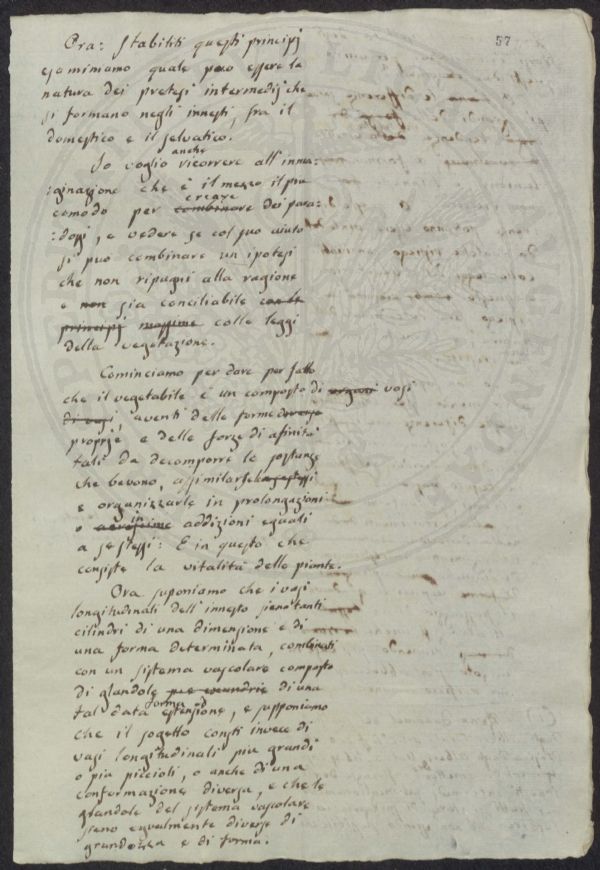 57
Ora: stabiliti questi principj
esaminiamo quale possa essere la
natura dei pretesi intermedij che
si formano negli innesti, fra il
domestico e il selvatico.
Io voglio anche ricorrere all'imma:
:ginazione che è il mezzo il piu
comodo per combinare creare dei para:
:dossi, e vedere se col suo aiuto
si può combinare un ipotesi
che non ripugni alla ragione
e non sia conciliabile
principj massime colle leggi
della vegetazione.
Cominciamo per dare per fatto
che il vegetabile è un composto di organi vasi
aventi delle forme diverse
proprie e delle forze di afinità
tali da decomporre le sostanze
che bevono, assimilarsele
e organizzarle in prolongazioni
o in addizioni eguali
a se stessi: E in questo che
consiste la vitalità delle piante.
Ora suponiamo che i vasi
longitudinali dell'innesto sieno tanti
cilindri di una dimensione e di
una forma determinata, combinati
con un sistema vascolare composto
di glandole di una
tal data forma ed estensione, e supponiamo
che il sogetto consti invece di
vasi longitudinali piu grandi
o piu piccioli, o anche di una
conformazione diversa, e che le
glandole del sistema vascolare
sieno egualmente diverse di
grandezza e di forma.